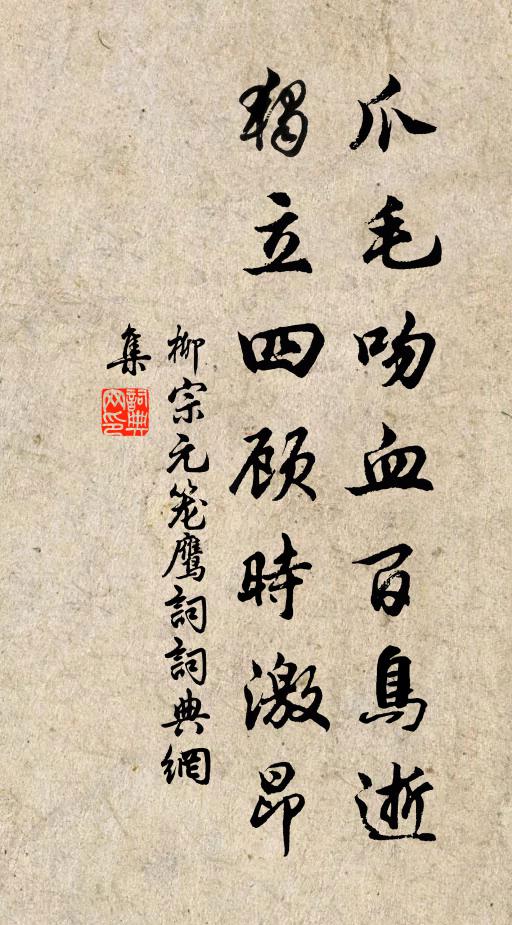 爪毛吻血百鳥逝
獨立四顧時激昂
柳宗元笼鹰詞詞典網
集
詞典
网印